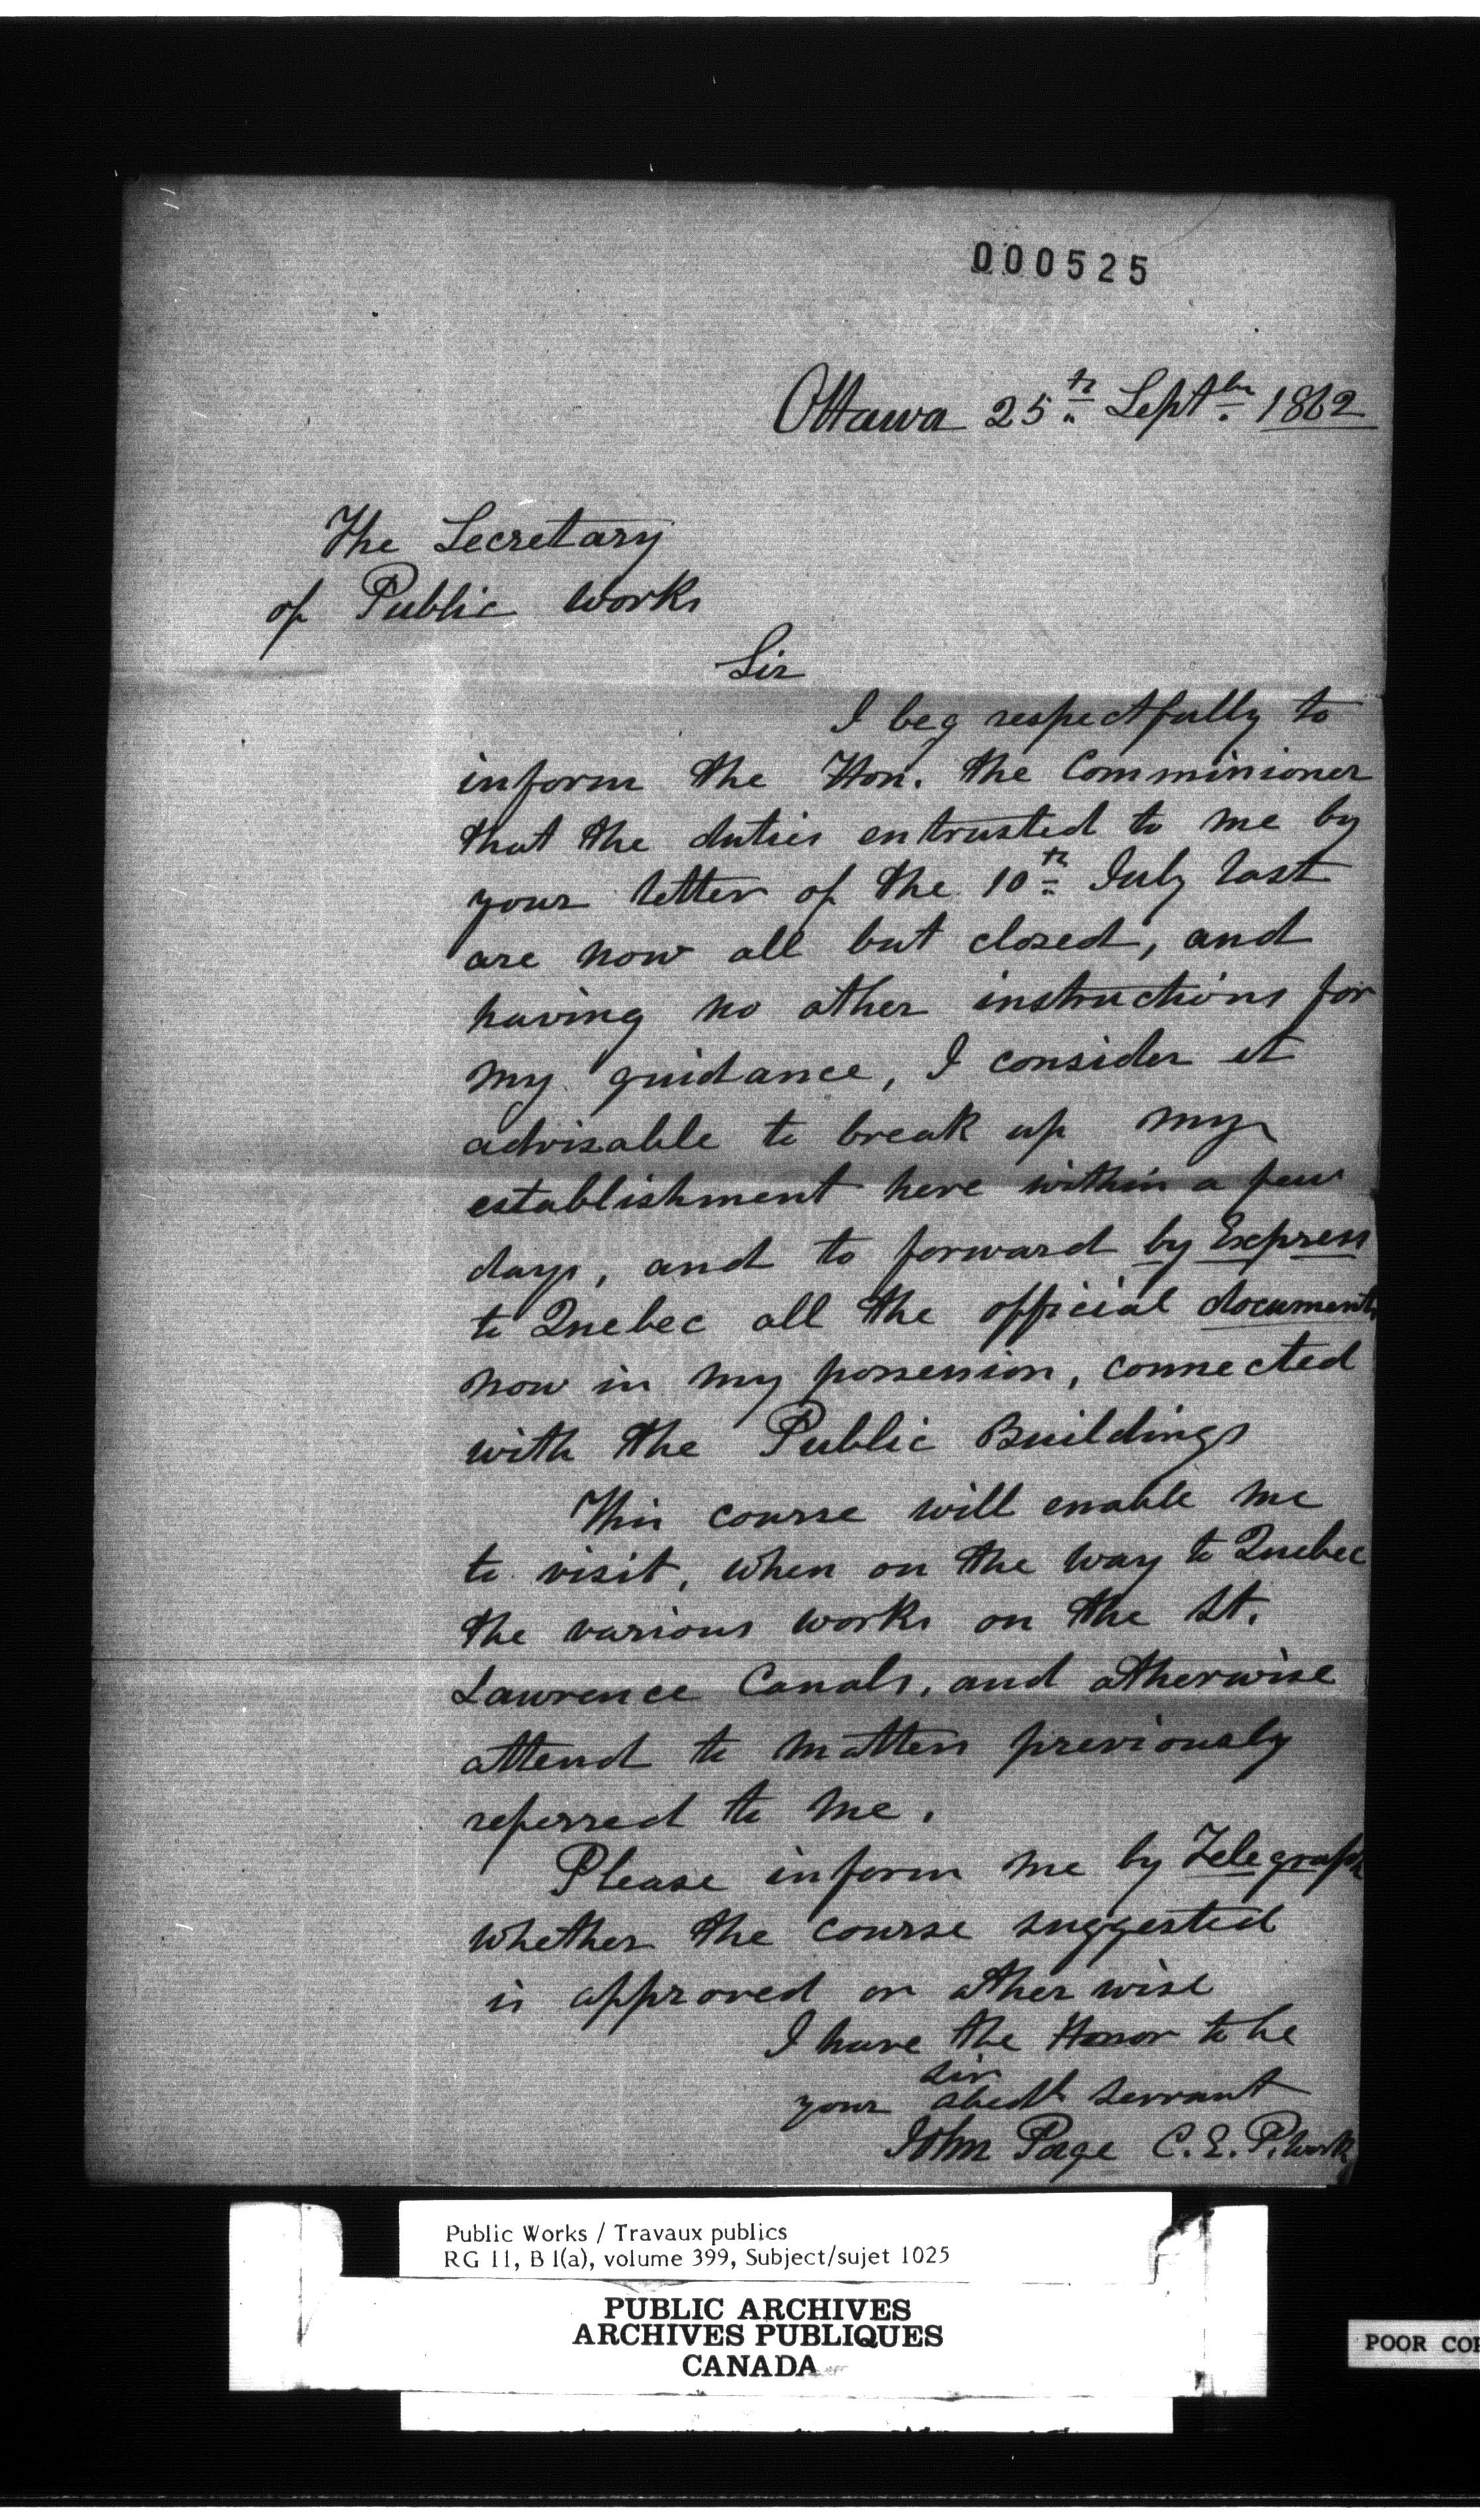 000525
Ottawa 25th Septbr 1862
The Secretary
of Public Works
Sir
I beg respectfully to
inform the Hon. the Commissioner
that the duties entrusted to me by
your letter of the 10th July last
are now all but closed, and
having no other instructions for
my guidance, I consider it
advisable to break up my
establishment here within a few
days, and to forward by Express
to Quebec all the official documents
now in my possession, connected
with the Public Buildings
This course will enable me
to visit, when on the way to Quebec
the various works on the St.
Lawrence Canals, and otherwise
attend to matters previously
referred to me.
Please inform me by Telegraph
whether the course suggested
is approved or other wise
I have the Honor to be
sir
your obedt servant
John Page C. E. P. Works
Public Works / Travaux publics
RG 11, B 1(a), volume 399, Subject/sujet 1025
PUBLIC ARCHIVES
ARCHIVES PUBLIQUES
CANADA
POOR COP